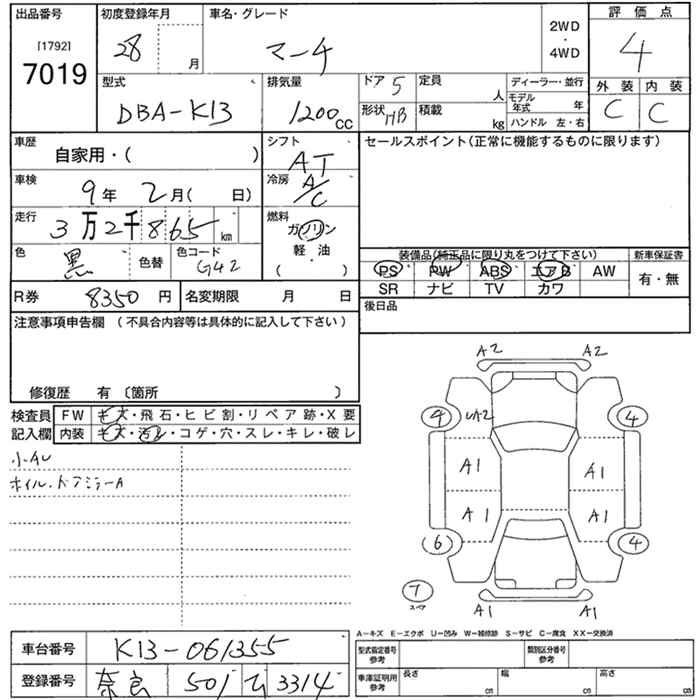 出品番号
[1792]
7019
初度登録年月
28 月
車名・グレード
マーチ
2WD
・
4WD
評価点
4
型式
DBA-K13
排気量
1200 CC
ドア 5
形状 HB
定員 人
積載 kg
ディーラー・並行
モデル年式 年
ハンドル 左・右
外装 内装
C C
車歴
自家用・( )
シフト
AT
セールスポイント(正常に機能するものに限ります)
車検
9年 2月( 日)
冷房
A/C
走行
3万2千865 km
燃料
ガソリン
軽・油
( )
色
黒
色替
色コード
G42
装備品(純正品に限り丸をつけて下さい)
PS PW ABS エアB AW
SR ナビ TV カワ
新車保証書
有・無
R券 8350 円
名変期限 月 日
後日品
注意事項申告欄 (不具合内容等は具体的に記入して下さい)
修復歴 有 〔箇所 〕
検査員記入欄
FW キズ・飛石・ヒビ割・リペア跡・X要
内装 キズ・汚レ・コゲ・穴・スレ・キレ・破レ
小AU
ホイル・ドアミラーA
A2 A2
4 UA2 4
A1 A1
A1 A1
6 4
7
スペア
A1 A1
A−キズ E−エクボ U−凹み W−補修跡 S−サビ C−腐食 XX−交換済
車台番号 K13-061355
登録番号 奈良 501 3314
型式指定番号
参考
類別区分番号
参考
車庫証明用
参考
長さ cm
幅 cm
高さ cm